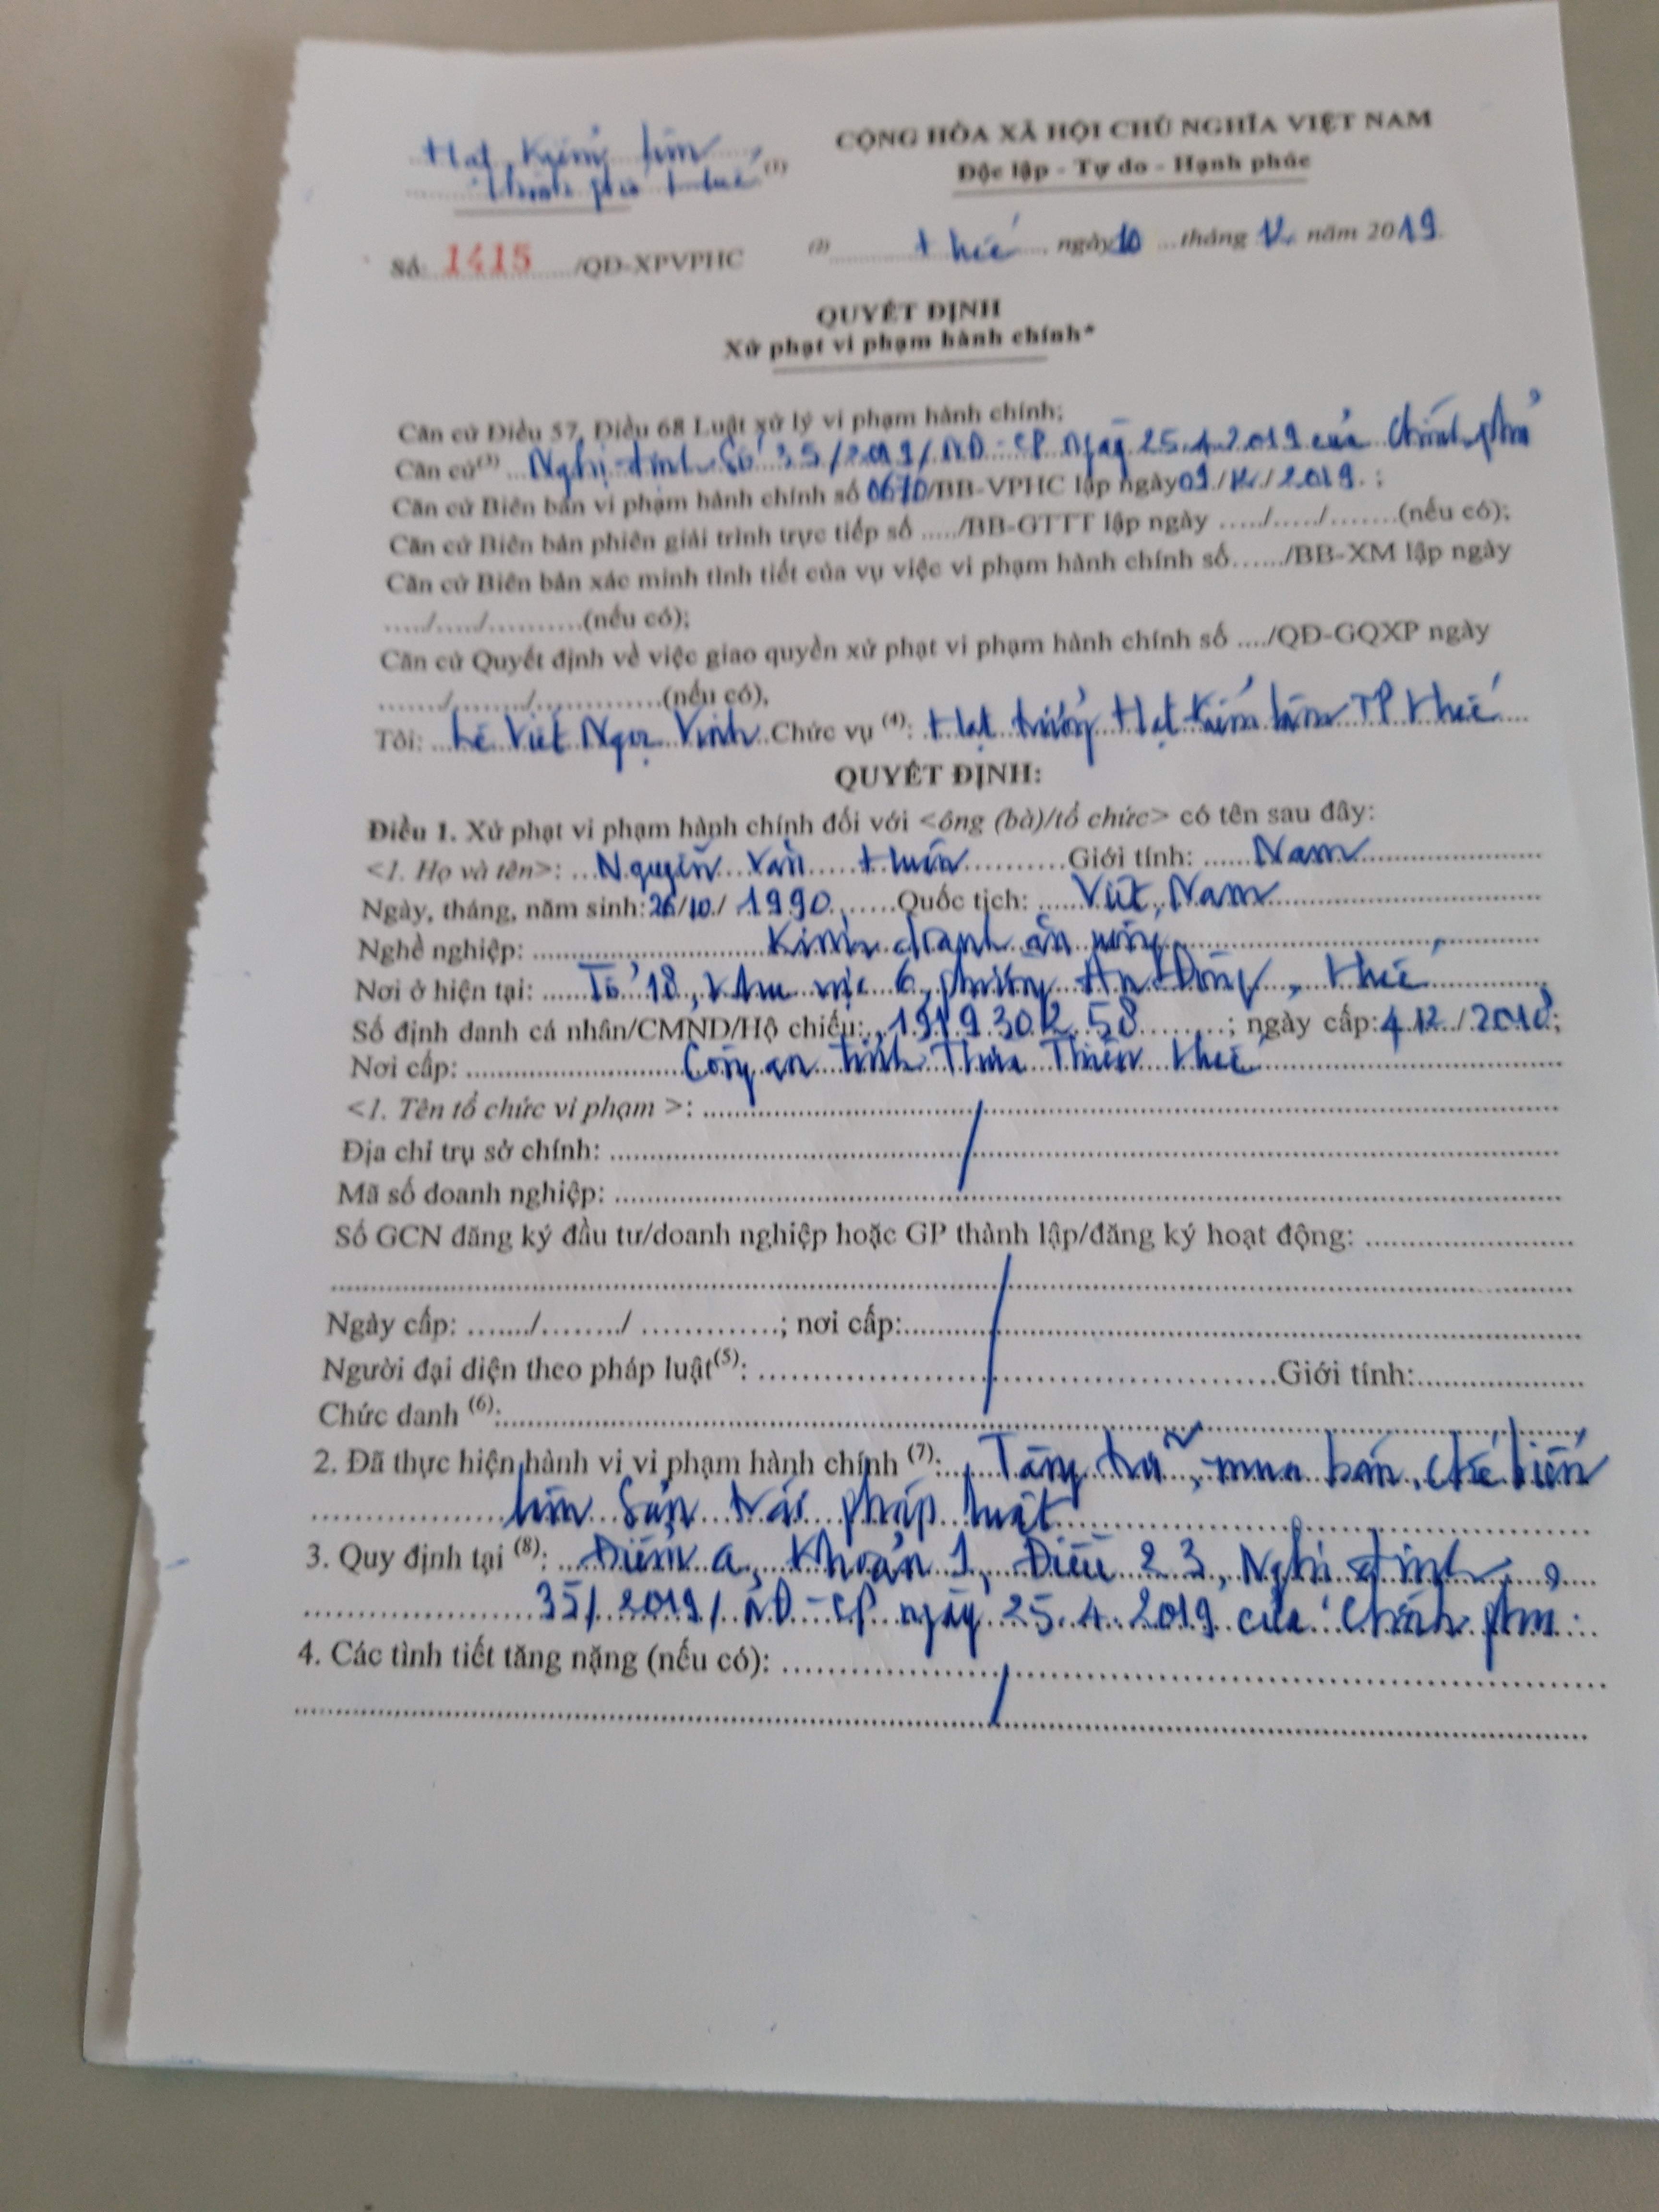 Hạt Kiểm lâm
thành phố Huế (1)
CỘNG HÒA XÃ HỘI CHỦ NGHĨA VIỆT NAM
Độc lập - Tự do - Hạnh phúc
Số: 1415 /QĐ-XPVPHC
(2) Huế, ngày 10 tháng 12 năm 2019
QUYẾT ĐỊNH
Xử phạt vi phạm hành chính*
Căn cứ Điều 57, Điều 68 Luật xử lý vi phạm hành chính;
Căn cứ (3) Nghị định số 35/2019/NĐ-CP ngày 25.4.2019 của Chính phủ
Căn cứ Biên bản vi phạm hành chính số 0670/BB-VPHC lập ngày 09/12/2019.;
Căn cứ Biên bản phiên giải trình trực tiếp số ...../BB-GTTT lập ngày ...../...../.......(nếu có);
Căn cứ Biên bản xác minh tình tiết của vụ việc vi phạm hành chính số....../BB-XM lập ngày
...../...../..........(nếu có);
Căn cứ Quyết định về việc giao quyền xử phạt vi phạm hành chính số ..../QĐ-GQXP ngày
......./......../.............(nếu có),
Tôi: Lê Viết Ngọc Vinh Chức vụ (4): Hạt trưởng Hạt Kiểm lâm TP Huế
QUYẾT ĐỊNH:
Điều 1. Xử phạt vi phạm hành chính đối với <ông (bà)/tổ chức> có tên sau đây:
<1. Họ và tên>: Nguyễn Văn Giới tính: Nam
Ngày, tháng, năm sinh: 26/10/1990 Quốc tịch: Việt Nam
Nghề nghiệp: Kinh doanh ăn uống
Nơi ở hiện tại: Tổ 18, khu vực 6, phường An Đông, Huế
Số định danh cá nhân/CMND/Hộ chiếu: 191930 58 ; ngày cấp: 4.12./
Nơi cấp: Công an tỉnh Thừa Thiên Huế
<1. Tên tổ chức vi phạm >:
Địa chỉ trụ sở chính:
Mã số doanh nghiệp:
Số GCN đăng ký đầu tư/doanh nghiệp hoặc GP thành lập/đăng ký hoạt động:
Ngày cấp: ......./......../ .............; nơi cấp:
Người đại diện theo pháp luật(5): Giới tính:
Chức danh (6):
2. Đã thực hiện hành vi vi phạm hành chính (7): Tàng trữ, mua bán, chế biến
lâm sản trái pháp luật
3. Quy định tại (8): Điểm a, Khoản 1, Điều 23, Nghị định
35/2019/NĐ-CP ngày 25.4.2019 của Chính phủ.
4. Các tình tiết tăng nặng (nếu có):